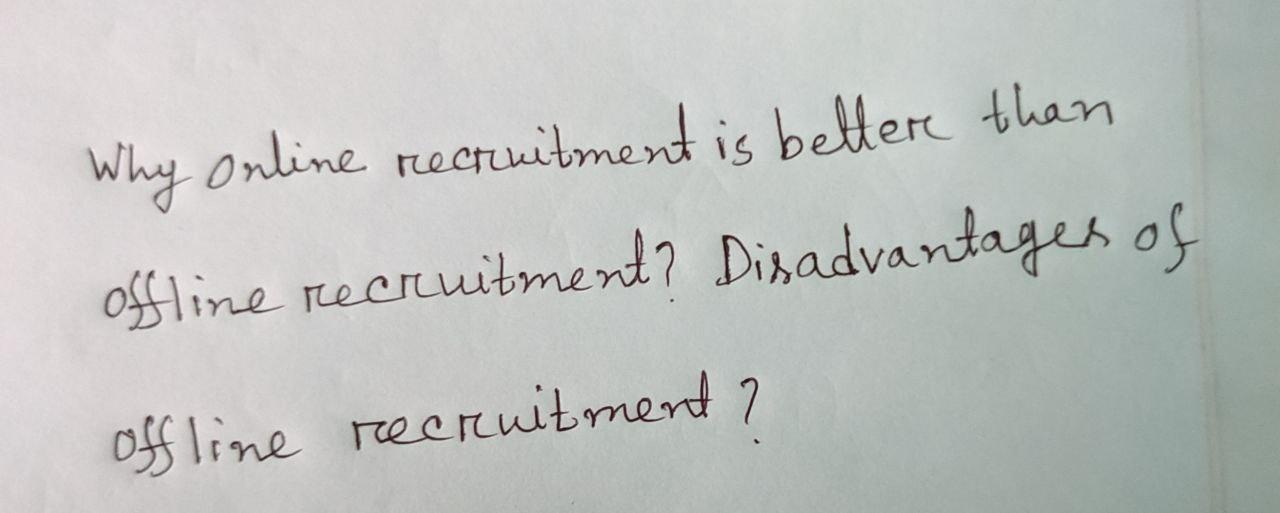 Why online recruitment is better than
offline recruitment? Disadvantages of
offline recruitment?